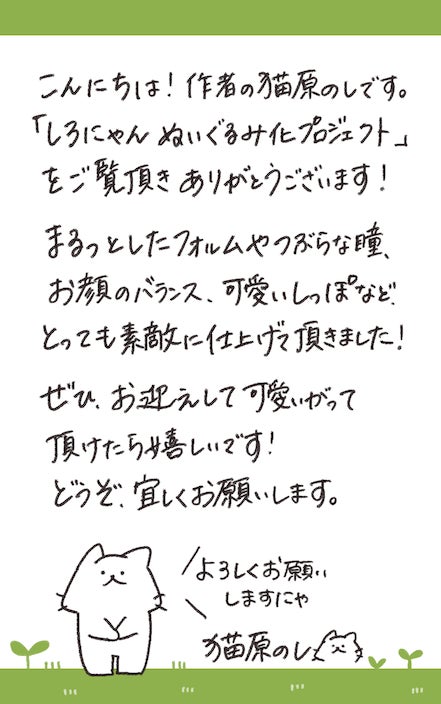 こんにちは！作者の猫原のしです。
「しろにゃん ぬいぐるみ化プロジェクト」
をご覧頂きありがとうございます！
まるっとしたフォルムやつぶらな瞳、
お顔のバランス、可愛いしっぽなど
とっても素敵に仕上げて頂きました！
ぜひ、お迎えして可愛いがって
頂けたら嬉しいです！
どうぞ、宜しくお願いします。
よろしくお願い
しますにゃ
猫原のし